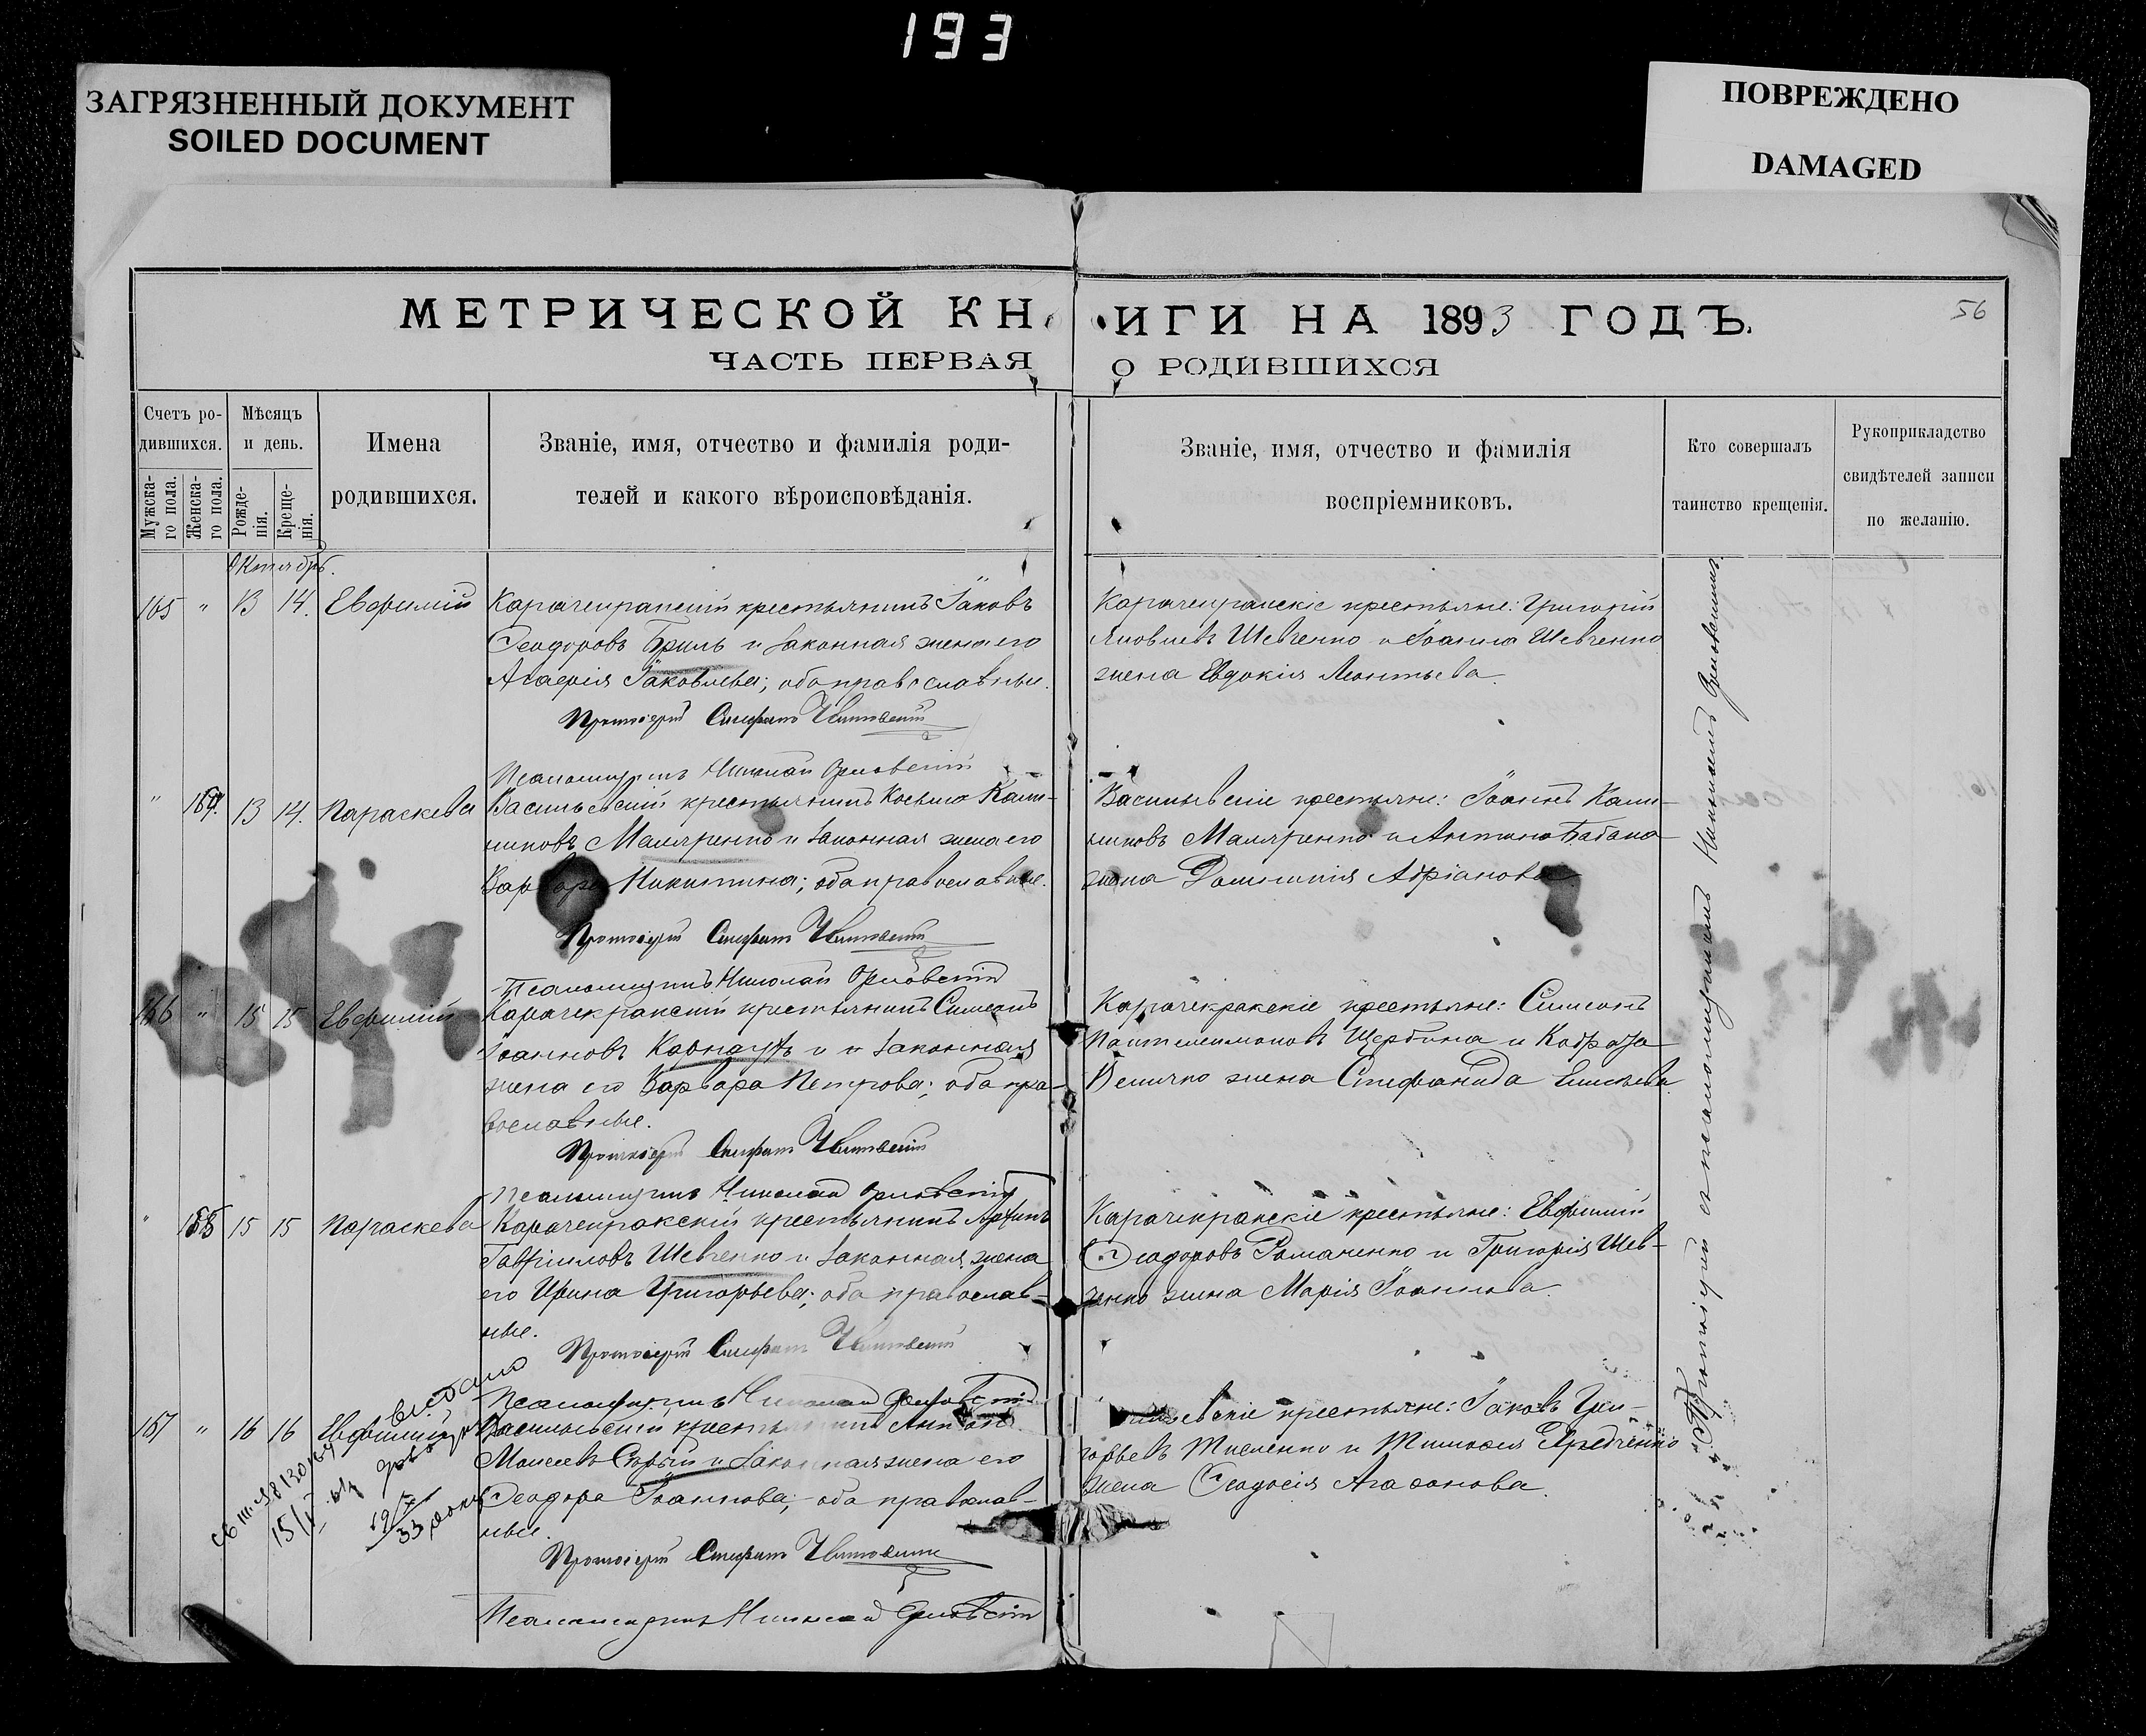 193
ЗАГРЯЗНЕННЫЙ ДОКУМЕНТ
SOILED DOCUMENT
ПОВРЕЖДЕНО
DAMAGED
МЕТРИЧЕСКОЙ КНИГИ НА 1893 ГОДЪ.
56
ЧАСТЬ ПЕРВАЯ О РОДИВШИХСЯ
Счетъ ро-
дившихся.
Мужска-
го пола.
Женска-
го пола.
Мѣсяцъ
и день.
Рожде-
нія.
Креще-
нія.
Имена
родившихся.
Званіе, имя, отчество и фамилія роди-
телей и какого вѣроисповѣданія.
Званіе, имя, отчество и фамилія
воспріемниковъ.
Кто совершалъ
таинство крещенія.
Рукоприкладство
свидѣтелей записи
по желанію.
Октябрь.
165 " 13 14. Евфимій
Карачекракскій крестьянинъ Іаковъ
Ѳеодоровъ Бриль и законная жена его
Агаѳія Іаковлева; оба православные.
Протоіерей
Псаломщикъ Николай Орловскій
Карачекракскіе крестьяне: Григорій
Яковлевъ Шевченко и Іоанна Шевченко
жена Евдокія Леонтьева.
" 13 14. Параскева
Васильевскій крестьянинъ Косьма Кали-
никовъ Маляренко и законная жена его
Варвара Никитина; оба православные.
Протоіерей
Псаломщикъ Николай Орловскій
Васильевскіе крестьяне: Іоаннъ Кали-
никовъ Маляренко и Антона Бабака
жена Домникія Адріанова
166 " 15 15 Евфимій
Карачекракскій крестьянинъ Симеонъ
Іоанновъ Карнаухъ и законная
жена его Варвара Петрова; оба пра-
вославные.
Протоіерей
Псаломщикъ Николай Орловскій
Карачекракскіе крестьяне: Симеонъ
Пантелеимоновъ Щербина и
Величко жена Стефанида
" 15 15 Параскева
Карачекракскій крестьянинъ
Гавриловъ Шевченко и законная жена
его Ирина Григорьева; оба православ-
ные.
Протоіерей
Псаломщикъ Николай Орловскій
Карачекракскіе крестьяне: Евфимій
Ѳеодоровъ Романенко и Григорія Шев-
ченко жена Марія Іоаннова.
167 " 16 16 Евфимій
Васильевскій крестьянинъ Антонъ
Моисеевъ Сѣрый и законная жена его
Ѳеодора Іоаннова; оба православ-
ные.
Протоіерей
Псаломщикъ Николай Орловскій
крестьяне: Іаковъ Гри-
горьевъ и Тимоѳея
жена Ѳеодосія Агаѳонова.
Протоіерей съ псаломщикомъ Николаемъ Орловскимъ